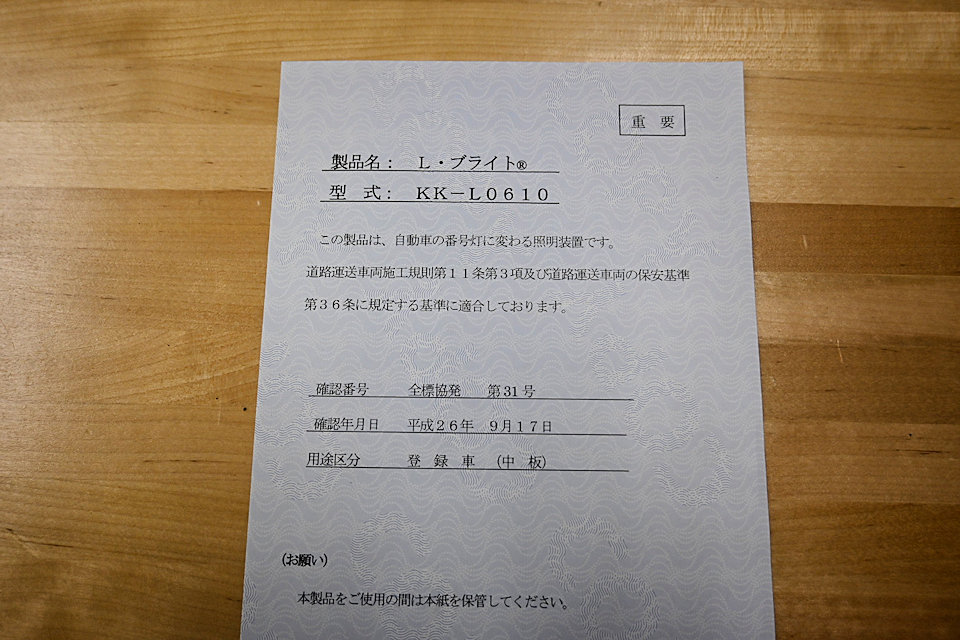 重　要
製品名：　Ｌ・ブライト®
型　式：　ＫＫ－Ｌ０６１０
この製品は、自動車の番号灯に変わる照明装置です。
道路運送車両施工規則第１１条第３項及び道路運送車両の保安基準
第３６条に規定する基準に適合しております。
確認番号　　全標協発　　第31号
確認年月日　　平成２６年　９月１７日
用途区分　　登　録　車　（中　板）
（お願い）
本製品をご使用の間は本紙を保管してください。